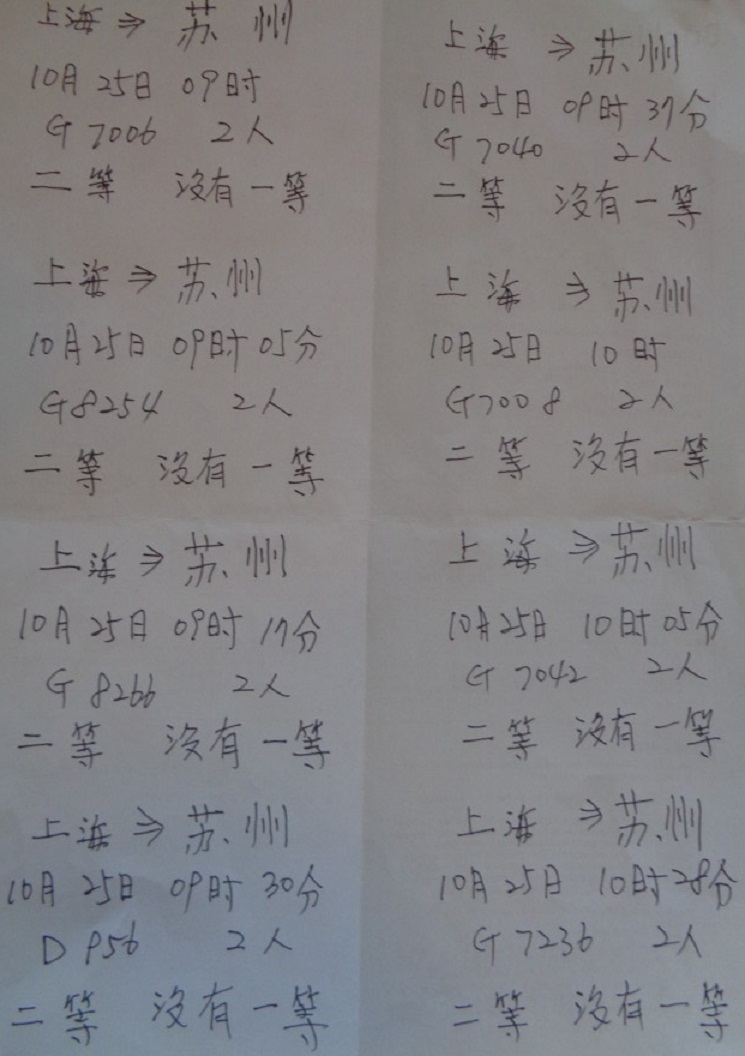 上海 ⇒ 苏州
10月25日 09时
G7006 2人
二等 没有一等
上海 ⇒ 苏州
10月25日 09时05分
G8254 2人
二等 没有一等
上海 ⇒ 苏州
10月25日 09时17分
G8266 2人
二等 没有一等
上海 ⇒ 苏州
10月25日 09时30分
D956 2人
二等 没有一等
上海 ⇒ 苏州
10月25日 09时37分
G7040 2人
二等 没有一等
上海 ⇒ 苏州
10月25日 10时
G7008 2人
二等 没有一等
上海 ⇒ 苏州
10月25日 10时05分
G7042 2人
二等 没有一等
上海 ⇒ 苏州
10月25日 10时28分
G7236 2人
二等 没有一等